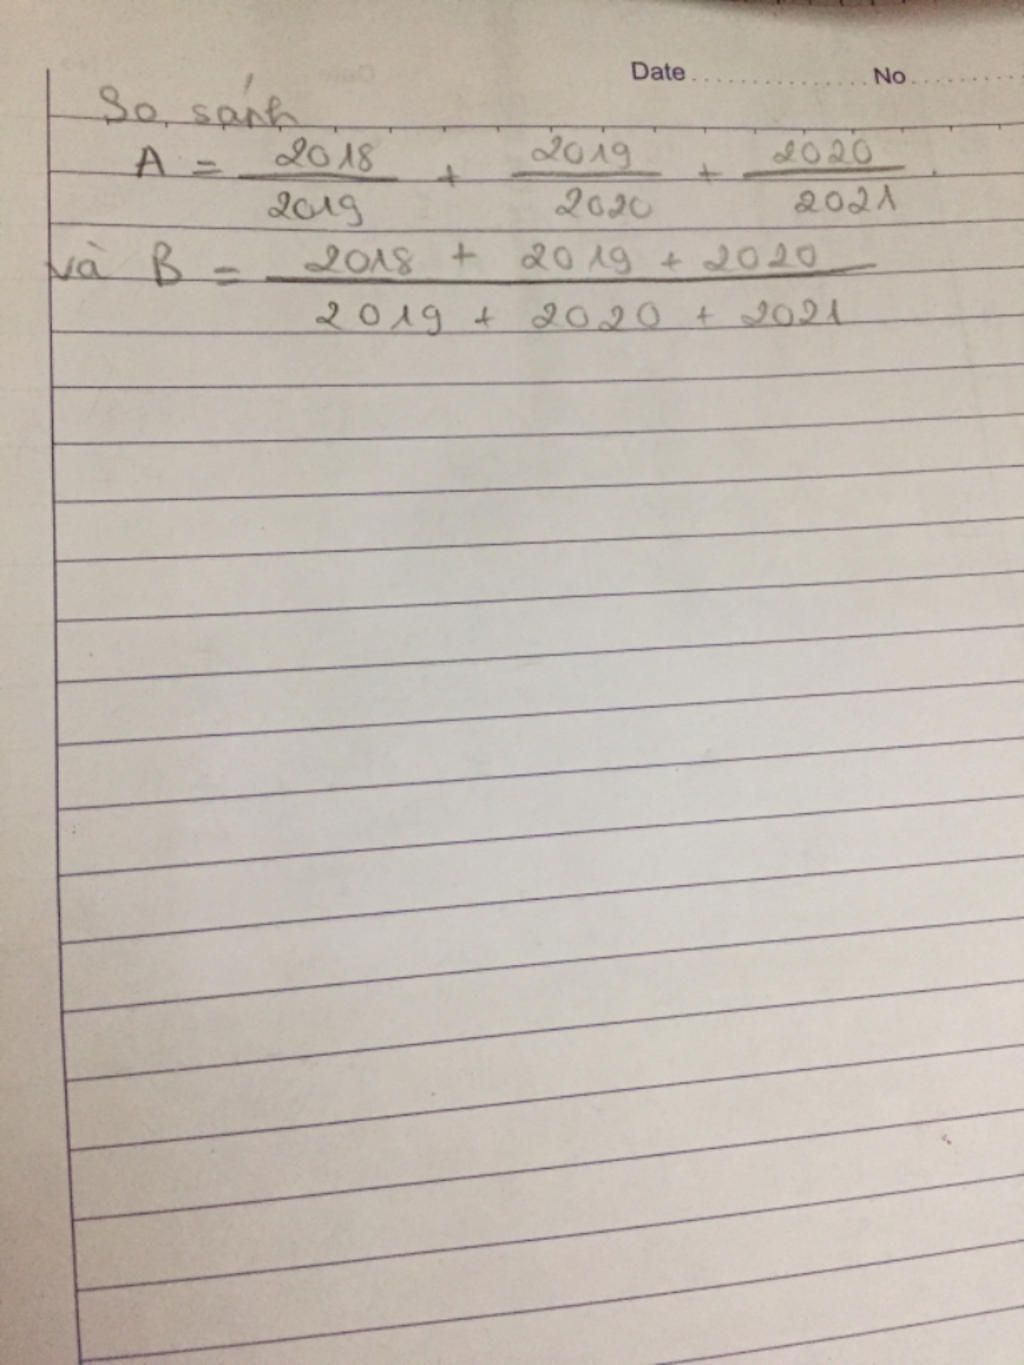 Date.................No............
So sánh
A = 2018/2019 + 2019/2020 + 2020/2021.
và B = 2018 + 2019 + 2020
2019 + 2020 + 2021